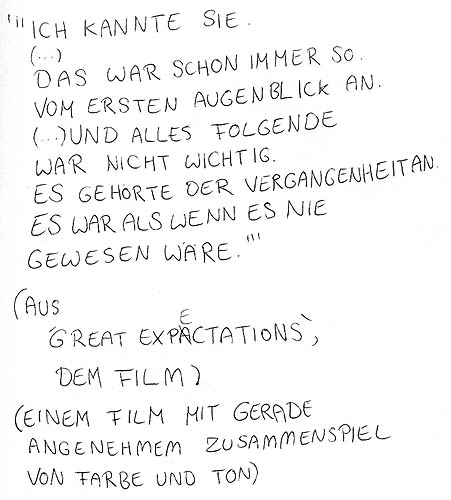 "" ICH KANNTE SIE.
(...)
DAS WAR SCHON IMMER SO.
VOM ERSTEN AUGENBLICK AN.
(...) UND ALLES FOLGENDE
WAR NICHT WICHTIG.
ES GEHÖRTE DER VERGANGENHEIT AN.
ES WAR ALS WENN ES NIE
GEWESEN WÄRE.""
(AUS
'GREAT EXPECTATIONS',
DEM FILM)
(EINEM FILM MIT GERADE
ANGENEHMEM ZUSAMMENSPIEL
VON FARBE UND TON)